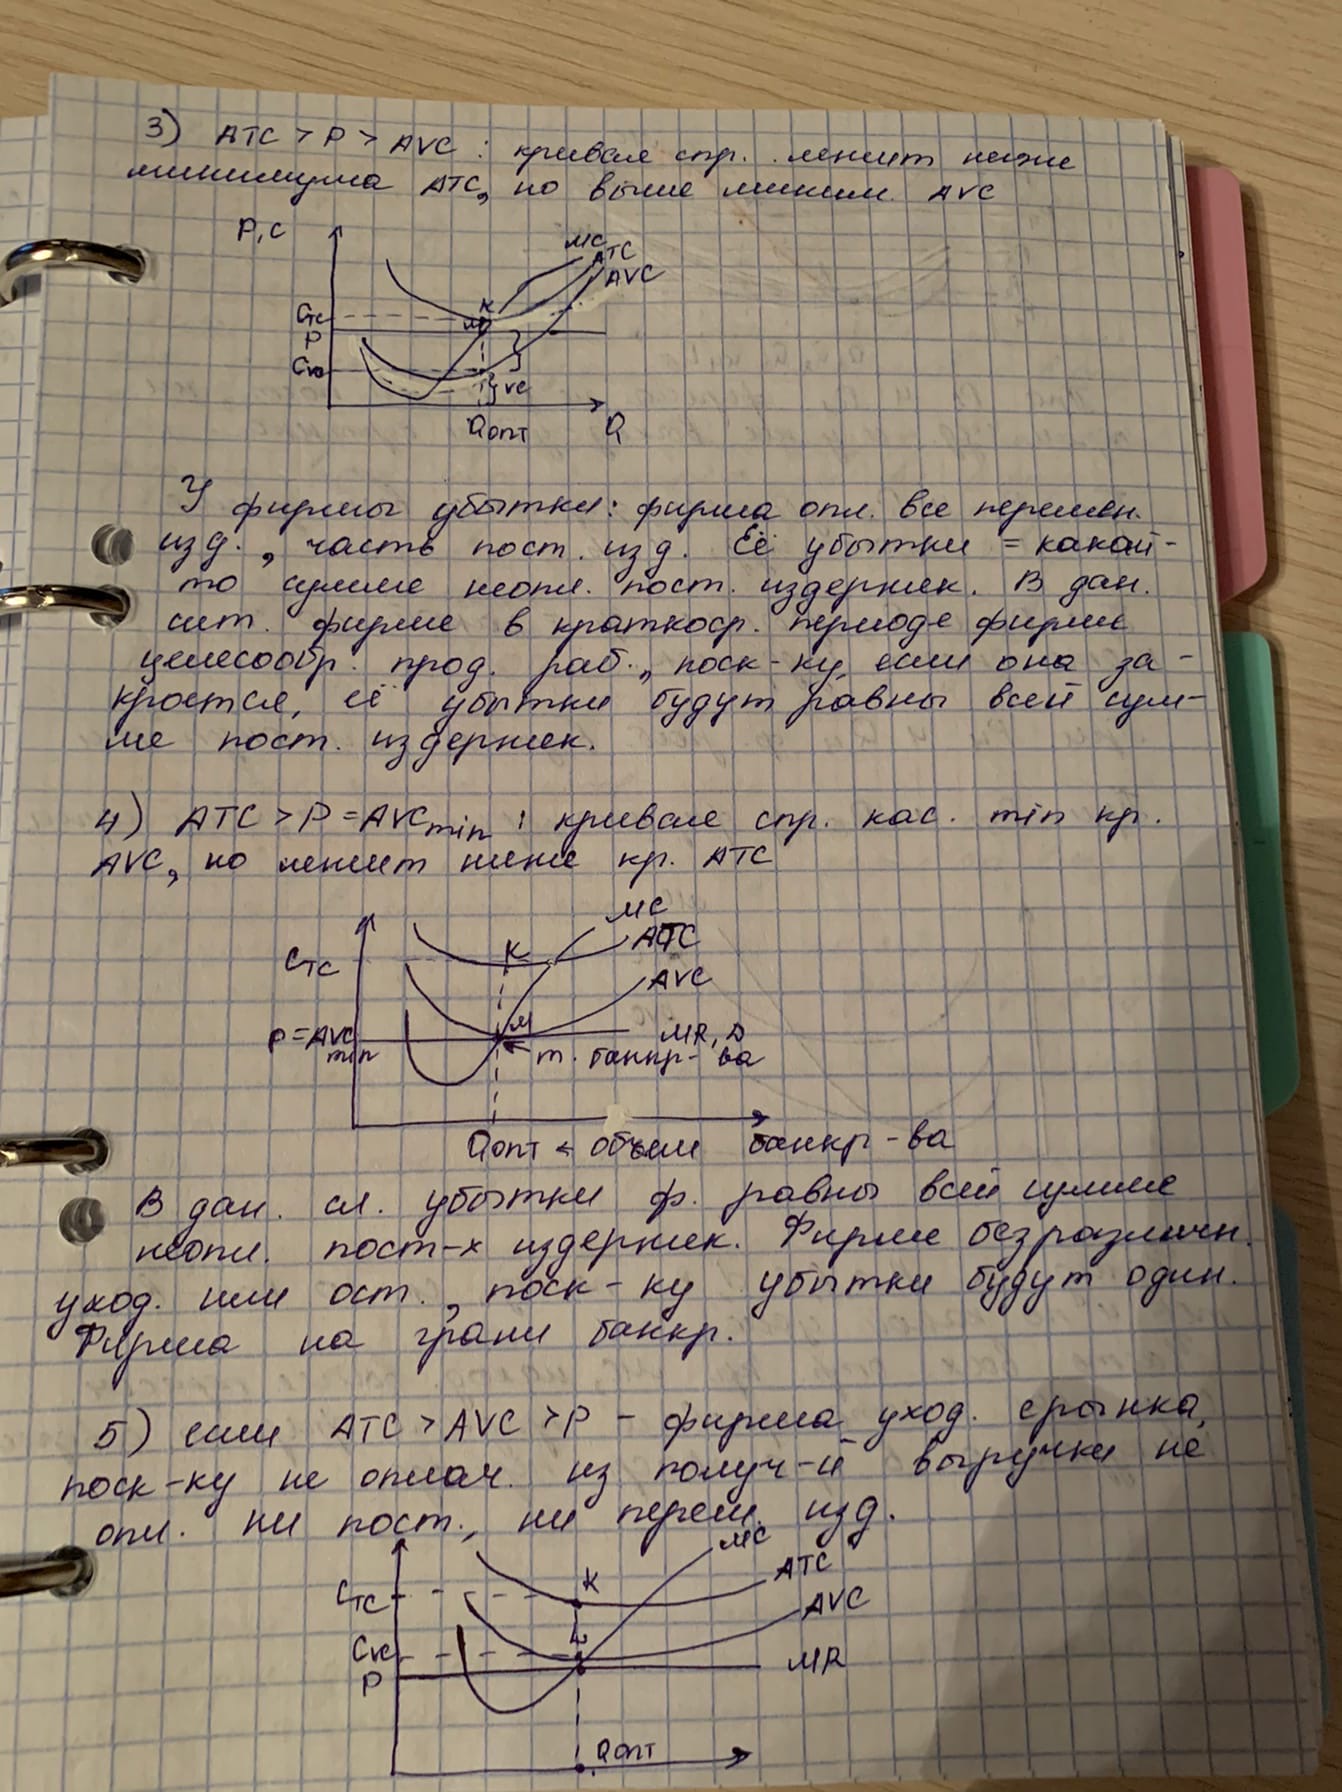 3) ATC > P > AVC : кривая спр. лежит ниже
минимума ATC, но выше миним. AVC
P, C
MC
ATC
AVC
K
CTC
P
CVC
VC
Qопт
Q
У фирмы убытки: фирма опл. все перемен.
изд., часть пост. изд. Её убытки = какой-
то сумме неопл. пост. издержек. В дан.
сит. фирме в краткоср. периоде фирме
целесообр. прод. раб., поск-ку, если она за-
кроется, её убытки будут равны всей сум-
ме пост. издержек.
4) ATC > P = AVCmin : кривая спр. кас. min кр.
AVC, но лежит ниже кр. ATC
MC
ATC
K
CTC
AVC
P = AVC min
M
MR, D
т. банкр-ва
Qопт = объем банкр-ва
В дан. сл. убытки ф. равны всей сумме
неопл. пост-х издержек. Фирме безразличн.
уход. или ост., поск-ку убытки будут один.
Фирма на грани банкр.
5) если ATC > AVC > P - фирма уход. с рынка,
поск-ку не оплач. из получ-й выручки не
опл. ни пост., ни перем. изд.
MC
ATC
K
CTC
AVC
L
CVC
P
MR
Qопт